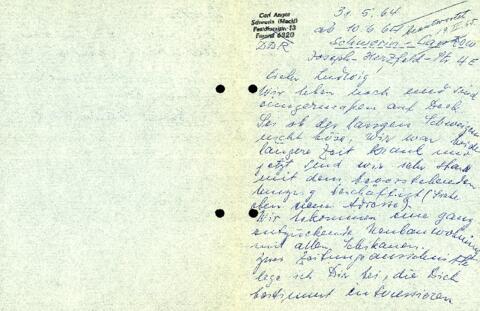 Carl Anger
Schwerin (Meckl)
13
Fernruf 6820
DDR
31.5.64
ab 10.6.64
Schwerin-
Joseph-Herzfeld-Str. 4E
Lieber Ludwig,
Wir leben noch und sind
einigermaßen auf Deck.
Sei ob des langen Schweigens
nicht böse. Wir waren beide
längere Zeit krank und
jetzt sind wir sehr stark
mit dem bevorstehenden
Umzug beschäftigt (siehe
oben neue Adresse).
Wir bekommen eine ganz
entzückende Neubauwohnung
mit allen Schikanen.
Zeitungsausschnitte
lege ich Dir bei, die Dich
bestimmt interessieren